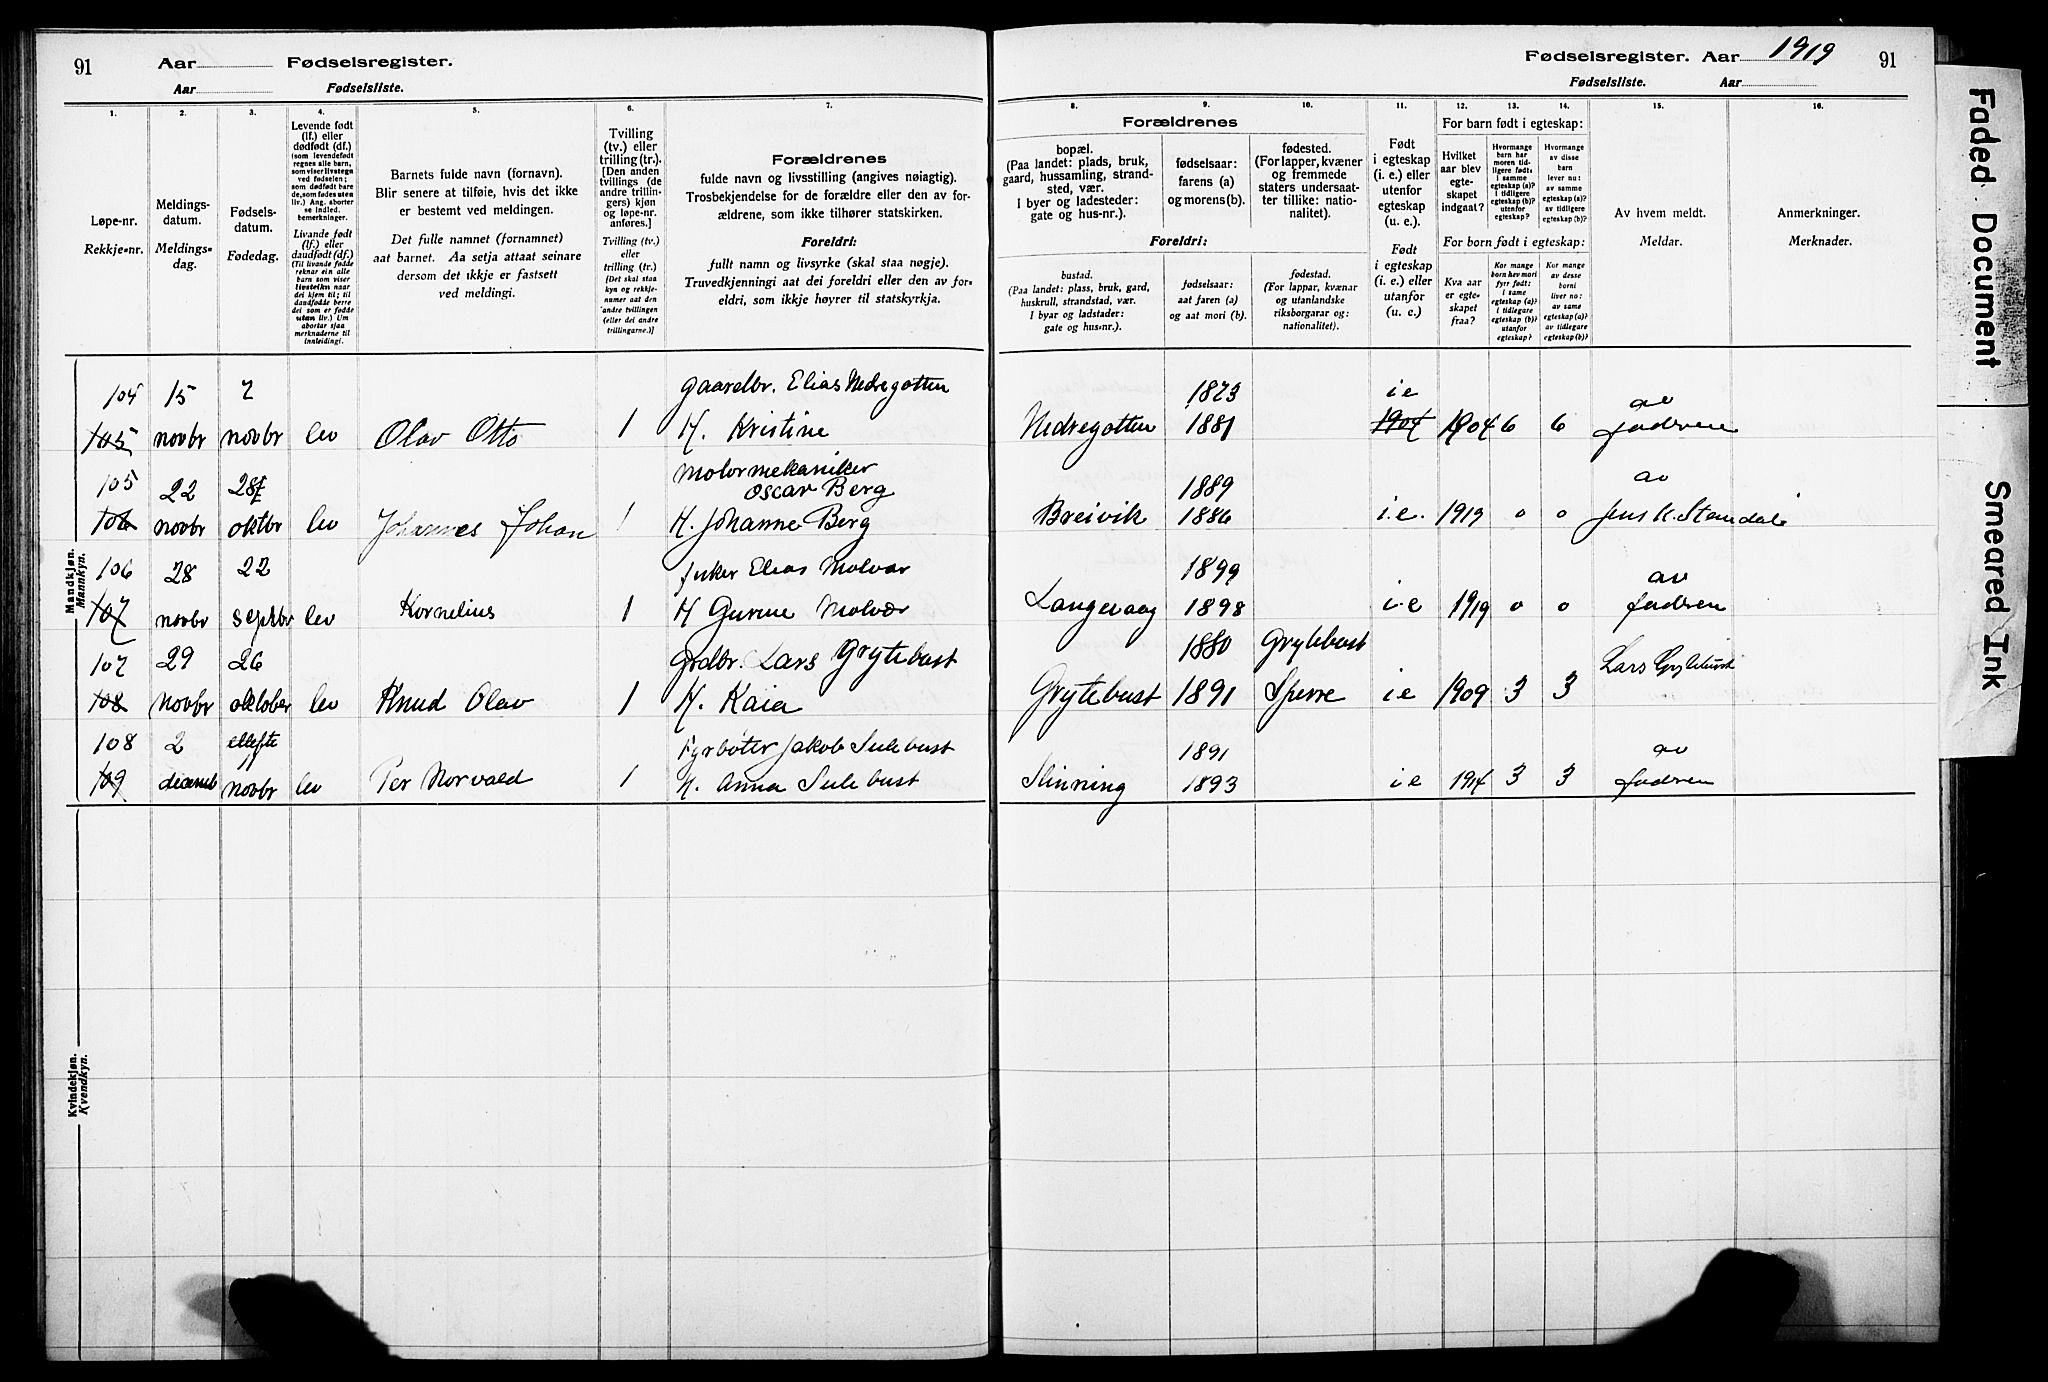 91 Aar Fødselsregister.
Aar Fødselsliste.
Fødselsregister. Aar 1919 91
Fødselsliste. Aar
1. 2. 3. 4. 5. 6. 7.
Løpe-nr.
Rekkje-nr.
Meldings-
datum.
Meldings-
dag.
Fødsels-
datum.
Fødedag.
Levende født
(lf.) eller
dødfødt (df.)
(som levendefødt
regnes alle barn,
som viser livstegn
ved fødselen;
som dødfødt bare
de, som fødes uten
liv.) Ang. aborter
se indled.
bemerkninger.
Livande født
(lf.) eller
daudfødt (df.)
(Til livande fødde
reknar ein alle
barn som viser
livsteikn naar
dei kjem til; til
daudfødde berre
dei som er fødde
utan liv.) Um
abortar sjaa
merknaderne til
innleidingi.
Barnets fulde navn (fornavn).
Blir senere at tilføie, hvis det ikke
er bestemt ved meldingen.
Det fulle namnet (fornamnet)
aat barnet. Aa setja attaat seinare
dersom det ikkje er fastsett
ved meldingi.
Tvilling
(tv.) eller
trilling (tr.).
[Den anden
tvillings (de
andre trillin-
gers) kjøn
og løpe-nr.
anføres.]
Tvilling (tv.)
eller
trilling (tr.)
[Det skal staa
kyn og rekkje-
numer aat den
andre tvillingen
(eller dei andre
trillingarne.)]
Forældrenes
fulde navn og livsstilling (angives nøiagtig).
Trosbekjendelse for de forældre eller den av for-
ældrene, som ikke tilhører statskirken.
Foreldri:
fullt namn og livsyrke (skal staa nøgje).
Truvedkjenningi aat dei foreldri eller den av for-
eldri, som ikkje høyrer til statskyrkja.
8. 9. 10. 11. 12. 13. 14. 15. 16.
Forældrenes
bopæl.
(Paa landet: plads, bruk,
gaard, hussamling, strand-
sted, vær.
I byer og ladesteder:
gate og hus-nr.).
fødselsaar:
farens (a)
og morens (b).
fødested.
(For lapper, kvæner
og fremmede
staters undersaat-
ter tillike: natio-
nalitet).
Foreldri:
bustad.
(Paa landet: plass, bruk, gard,
huskrull, strandstad, vær.
I byar og ladstader:
gate og hus-nr.).
fødselsaar:
aat faren (a)
og aat mori (b).
fødestad.
(For lappar, kvænar
og utanlandske
riksborgarar og:
nationalitet).
Født
i egteskap
(i. e.) eller
utenfor
egteskap
(u. e.).
Født
i egteskap
(i. e.) eller
utanfor
(u. e.)
For barn født i egteskap:
Hvilket
aar blev
egte-
skapet
indgaat?
Hvormange
barn har
moren tid-
ligere født:
i samme
egteskap (a)?
i tidligere
egteskap (b)?
utenfor
egteskap?
Hvormange
av disse
barn
lever nu:
av samme
egteskap (a)?
av tidligere
egteskap (b)?
For born født i egteskap:
Kva aar
er egte-
skapet
fraa?
Kor mange
born hev mori
fyrr født:
i same
egteskap (a)?
i tidlegare
egteskap (b)?
utanfor
egteskap?
Kor mange
av desse
borni
liver no:
av same
egteskap (a)?
av tidlegare
egteskap (b)?
Av hvem meldt.
Meldar.
Anmerkninger.
Merknader.
Mandkjøn.
Mankyn.
104 15 7 gaardbr. Elias Nedregotten 1873 i e av
105 novbr novbr lev Olav Otto 1 H. Kristine Nedregotten 1881 1904 1904 6 6 faderen
105 22 28 Motormekaniker
Oscar Berg 1889 av
106 novbr oktbr lev Johannes Johan 1 H. Johanne Berg Breivik 1886 i.e. 1919 0 0 Jens K. Standale
106 28 22 Elias Molvær 1899 av
107 novbr septbr lev Kornelius 1 H Gurine Molvær Langevaag 1898 i e 1919 0 0 faderen
107 29 26 Grdbr. Lars Grytebust 1880 Grytebust Lars Grytebust
108 novbr oktober lev Knud Olav 1 H. Kaia Grytebust 1891 Sperre i e 1909 3 3
108 2 ellefte Fyrbøter Jakob Sulebust 1891 av
109 decemb novbr lev Per Norvald 1 H. Anna Sulebust Slinning 1893 i e 1914 3 3 faderen
Kvindekjøn.
Kvendkyn.
Faded Document
Smeared Ink